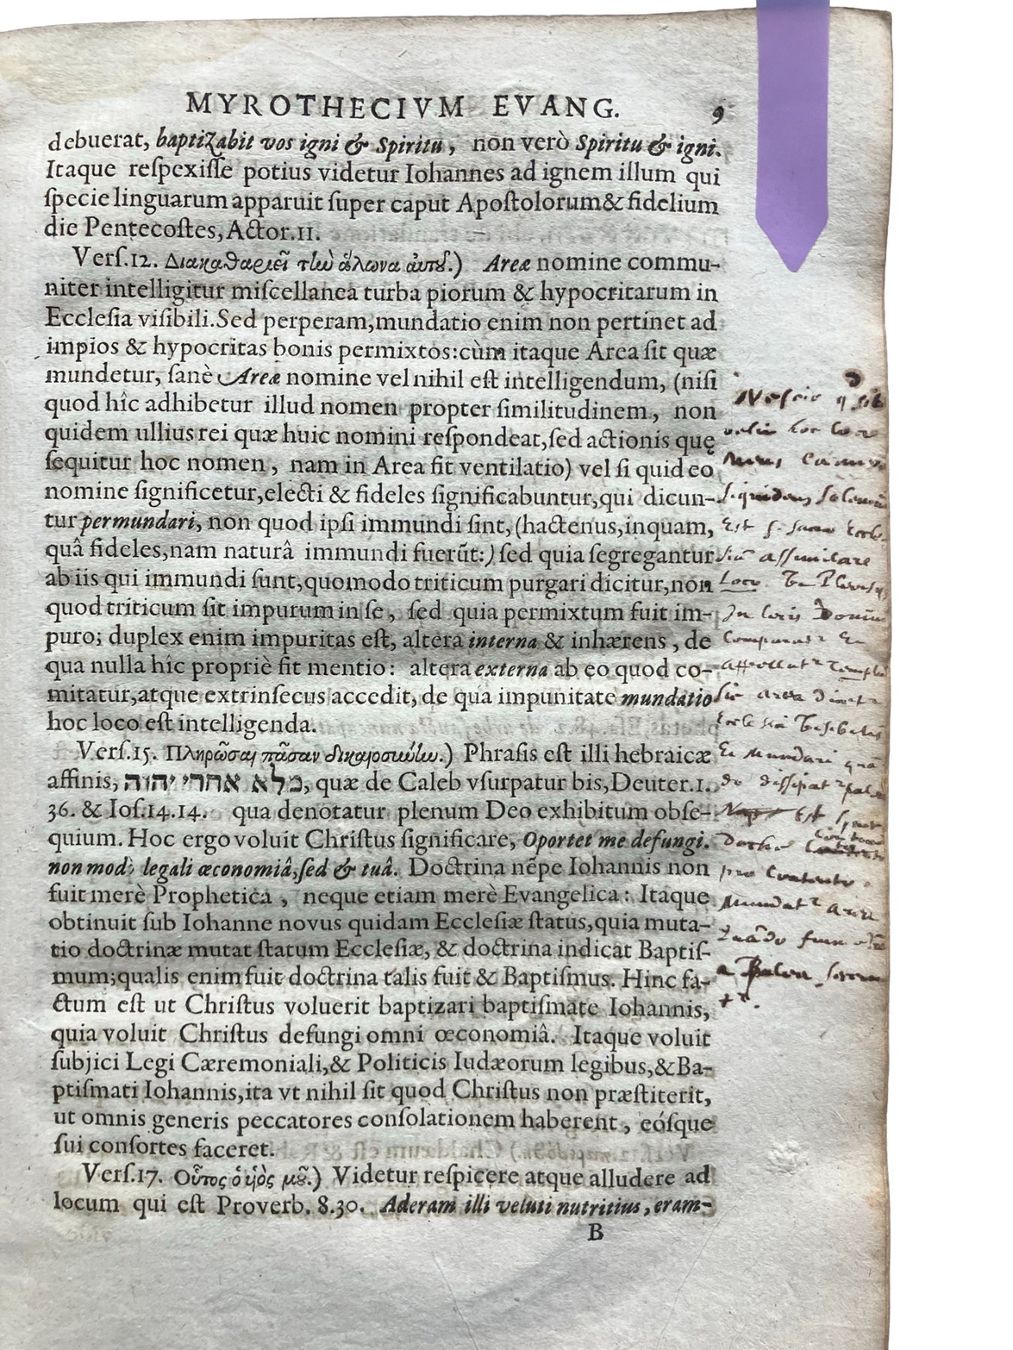 MYROTHECIVM EVANG. 9
debuerat, baptizabit vos igni & Spiritu, non verò Spiritu & igni.
Itaque reſpexiſſe potius videtur Iohannes ad ignem illum qui
ſpecie linguarum apparuit ſuper caput Apoſtolorum & fidelium
die Pentecoſtes, Actor. 11.
Verſ. 12. Διακαθαριεῖ τὴν ἅλωνα αὑτοῦ.) Areæ nomine commu-
niter intelligitur miſcellanea turba piorum & hypocritarum in
Eccleſia viſibili. Sed perperam, mundatio enim non pertinet ad
impios & hypocritas bonis permixtos: cùm itaque Area ſit quæ
mundetur, ſanè Areæ nomine vel nihil eſt intelligendum, (niſi
quod hîc adhibetur illud nomen propter ſimilitudinem, non
quidem ullius rei quæ huic nomini reſpondeat, ſed actionis quę
ſequitur hoc nomen, nam in Area fit ventilatio) vel ſi quid eo
nomine ſignificetur, electi & fideles ſignificabuntur, qui dicun-
tur permundari, non quod ipſi immundi ſint, (hactenus, inquam,
quâ fideles, nam naturâ immundi fuerūt:) ſed quia ſegregantur
ab iis qui immundi ſunt, quomodo triticum purgari dicitur, non
quod triticum ſit impurum in ſe, ſed quia permixtum fuit im-
puro; duplex enim impuritas eſt, altera interna & inhærens, de
qua nulla hic propriè fit mentio: altera externa ab eo quod co-
mitatur, atque extrinſecus accedit, de qua impunitate mundatio
hoc loco eſt intelligenda.
Verſ. 15. Πληρῶσαι πᾶσαν δικαιοσύνην.) Phraſis eſt illi hebraicæ
affinis, מלא אחרי יהוה, quæ de Caleb vſurpatur bis, Deuter. 1.
36. & Ioſ. 14. 14. qua denotatur plenum Deo exhibitum obſe-
quium. Hoc ergo voluit Chriſtus ſignificare, Oportet me defungi.
non modò legali œconomiâ, ſed & tuâ. Doctrina nēpe Iohannis non
fuit merè Prophetica, neque etiam merè Evangelica: Itaque
obtinuit ſub Iohanne novus quidam Eccleſiæ ſtatus, quia muta-
tio doctrinæ mutat ſtatum Eccleſiæ, & doctrina indicat Baptiſ-
mum; qualis enim fuit doctrina talis fuit & Baptiſmus. Hinc fa-
ctum eſt ut Chriſtus voluerit baptizari baptiſmate Iohannis,
quia voluit Chriſtus defungi omni œconomiâ. Itaque voluit
ſubjici Legi Cæremoniali, & Politicis Iudæorum legibus, & Ba-
ptiſmati Iohannis, ita vt nihil ſit quod Chriſtus non præſtiterit,
ut omnis generis peccatores conſolationem haberent, eóſque
ſui conſortes faceret.
Verſ. 17. Οὗτος ὁ ὑιὸς μȣ̃.) Videtur reſpicere atque alludere ad
locum qui eſt Proverb. 8. 30. Aderam illi veluti nutritius, eram-
B
Neſcio
hoc loco
Siquidem
est
assimilare
Loco
Domini
area
Mundari
dissipat
est
pro contento
Mundat area
Quādo
a Palea